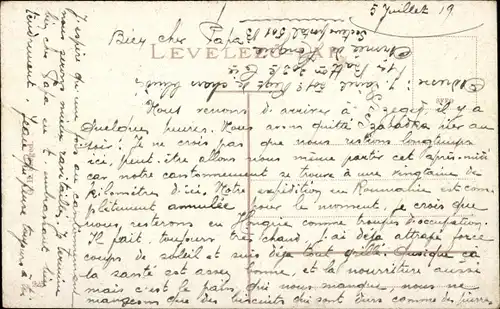 5 Juillet 19
Bien cher Papa
LEVELEZŐLAP
Nous venons d'arriver à Szeged, il y a
quelques heures. Nous avons quitté Szabadka hier au
soir! Je ne crois pas que nous restions longtemps
ici, peut-être allons nous même partir cet après-midi
car notre cantonnement se trouve à une vingtaine de
kilomètres d'ici. Notre expédition en Roumanie est com-
plètement annulée pour le moment, je crois que
nous resterons en Hongrie comme troupes d'occupation.
Il fait toujours très chaud. J'ai déjà attrapé force
coups de soleil et suis déjà tout grillé. Quoique ça
la santé est assez bonne, et la nourriture aussi
mais c'est le pain qui nous manque, nous ne
mangeons que des biscuits qui sont durs comme des pierres
J'espère qu'une fois au cantonnement
nous serons mieux ravitaillés. Je termine
cher Papa en t'embrassant bien
tendrement
Armée de Hongrie
Secteur postal 501